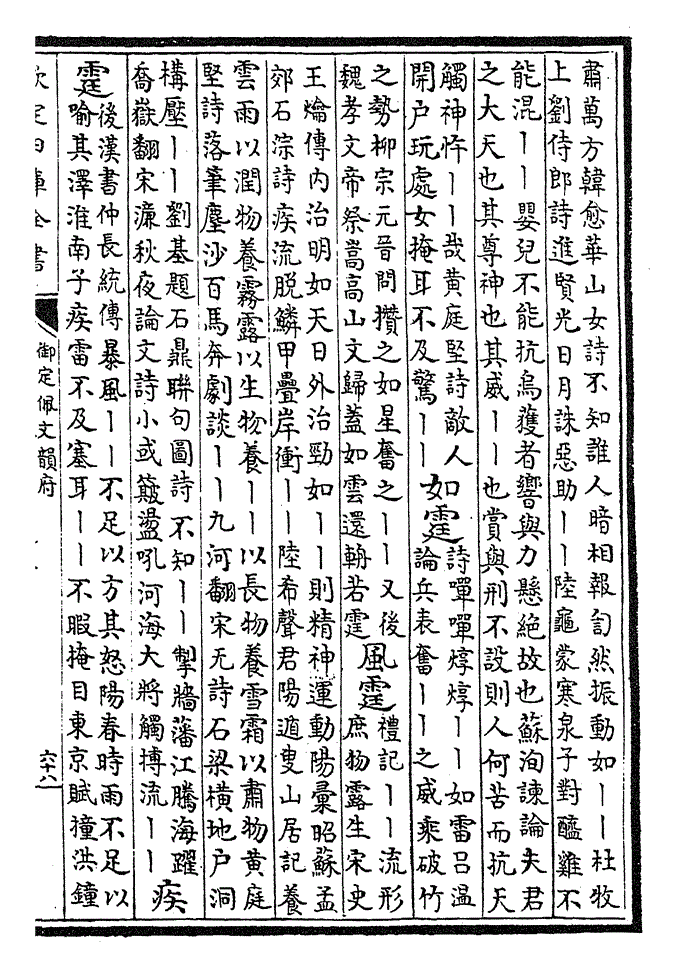 肅萬方韓愈華山女詩不知誰人暗相報訇然振動如丨丨杜牧
上劉侍郎詩進賢光日月誅惡助丨丨陸龜蒙寒泉子對醯雞不
能混丨丨嬰兒不能抗烏獲者響與力懸絶故也蘇洵諫論夫君
之大天也其尊神也其威丨丨也賞與刑不設則人何苦而抗天
觸神忤丨丨哉黃庭堅詩敵人
開户玩處女掩耳不及驚丨丨
如霆
詩嘽嘽焞焞丨丨如雷呂温
論兵表奮丨丨之威乘破竹
之勢柳宗元晉問攢之如星奮之丨丨又後
魏孝文帝祭嵩高山文歸蓋如雲還輈若霆
風霆
禮記丨丨流形
庶物露生宋史
王爚傳内治明如天日外治勁如丨丨則精神運動陽彙昭蘇孟
郊石淙詩疾流脱鱗甲疊岸衝丨丨陸希聲君陽遁叟山居記養
雲雨以潤物養霧露以生物養丨丨以長物養雪霜以肅物黃庭
堅詩落筆塵沙百馬奔劇談丨丨九河翻宋无詩石梁橫地户洞
構壓丨丨劉基題石鼎聯句圖詩不知丨丨掣牆藩江騰海躍
喬嶽翻宋濂秋夜論文詩小或簸盪吼河海大將觸搏流丨丨
疾
霆
後漢書仲長統傳暴風丨丨不足以方其怒陽春時雨不足以
喻其澤淮南子疾雷不及塞耳丨丨不暇掩目東京賦撞洪鐘
欽定四庫全書
御定佩文韻府
六十八